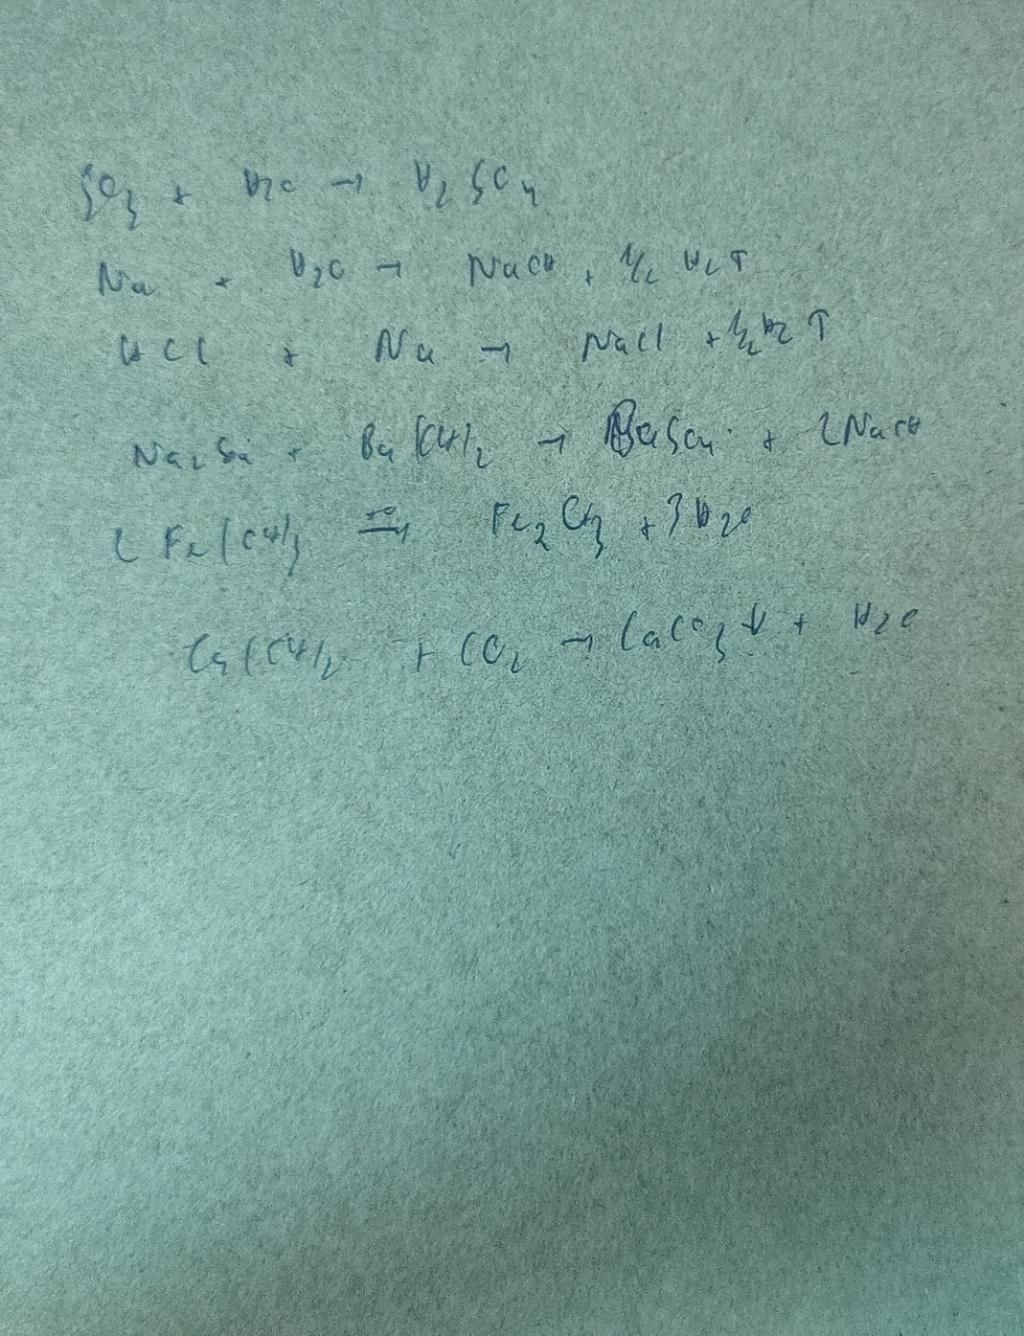 SO3 + H2O → H2SO4
Na + H2O → NaOH + 1/2 H2↑
HCl + Na → NaCl + 1/2 H2↑
Na2SO4 + Ba(OH)2 → BaSO4 + 2NaOH
2Fe(OH)3 → Fe2O3 + 3H2O
Ca(OH)2 + CO2 → CaCO3↓ + H2O